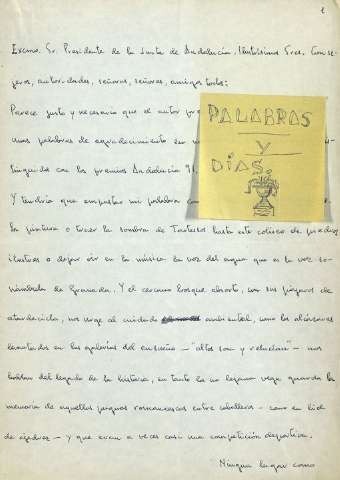 1
Excmo. Sr. Presidente de la Junta de Andalucía. Ilustrísimos Sres. Conse-
jeros, autoridades, señoras, señores, amigos todos:
Parece justo y necesario que el autor
unas palabras de agradecimiento en
tinguidos con los premios Andalucía
Y tendría que empastar mi palabra con
la pintura o traer la sombra de Tartessos hasta este coliseo de piedras
ilustres o dejar oír en la música la voz del agua que es la voz so-
námbula de Granada. Y el cercano bosque absorto, con sus pájaros de
atardecida, nos urge al cuidado ambiental, como los alcázares
levantados en las galerías del ensueño — "altos son y relucían" — nos
hablan del legado de la historia, en tanto la no lejana vega guarda la
memoria de aquellos juegos romancescos entre caballeros — como en lid
de ajedrez — y que eran a veces casi una competición deportiva.
Ningún lugar como
PALABRAS
Y
DÍAS.